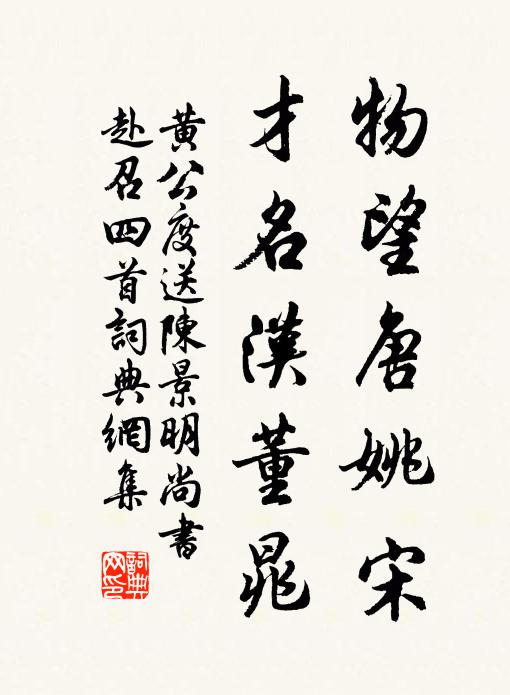 物望唐姚宋
才名漢董晁
黃公度送陳景明尚書
赴召四首詞典網集
詞典
网印